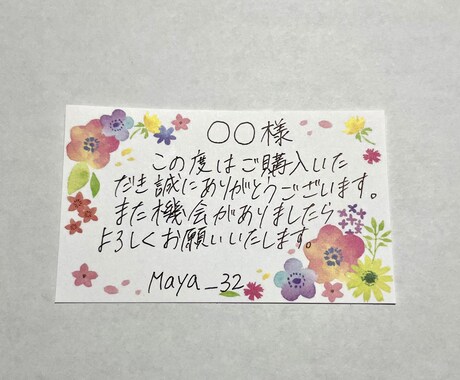 ○○様
この度はご購入いた
だき誠にありがとうございます。
また機会がありましたら
よろしくお願いいたします。
Maya_32